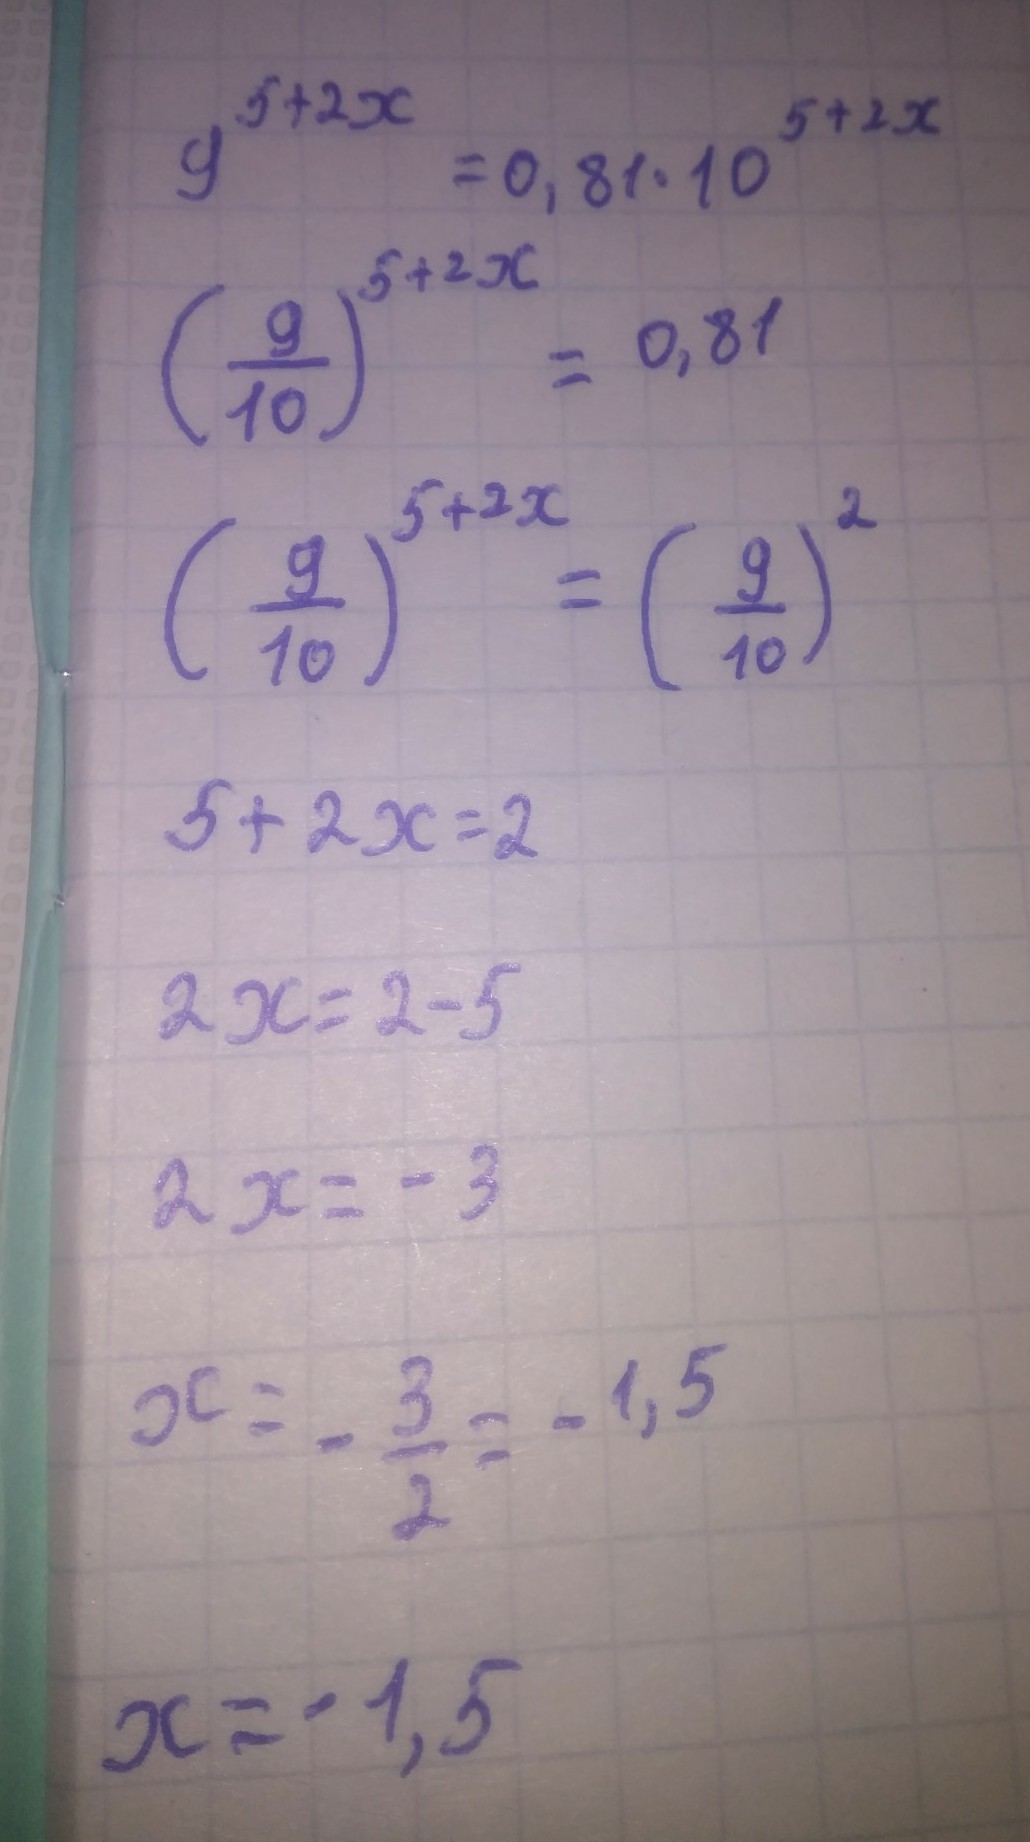 9^{5+2x} = 0,81·10^{5+2x}
(9/10)^{5+2x} = 0,81
(9/10)^{5+2x} = (9/10)^2
5+2x=2
2x=2-5
2x=-3
x=-3/2=-1,5
x=-1,5